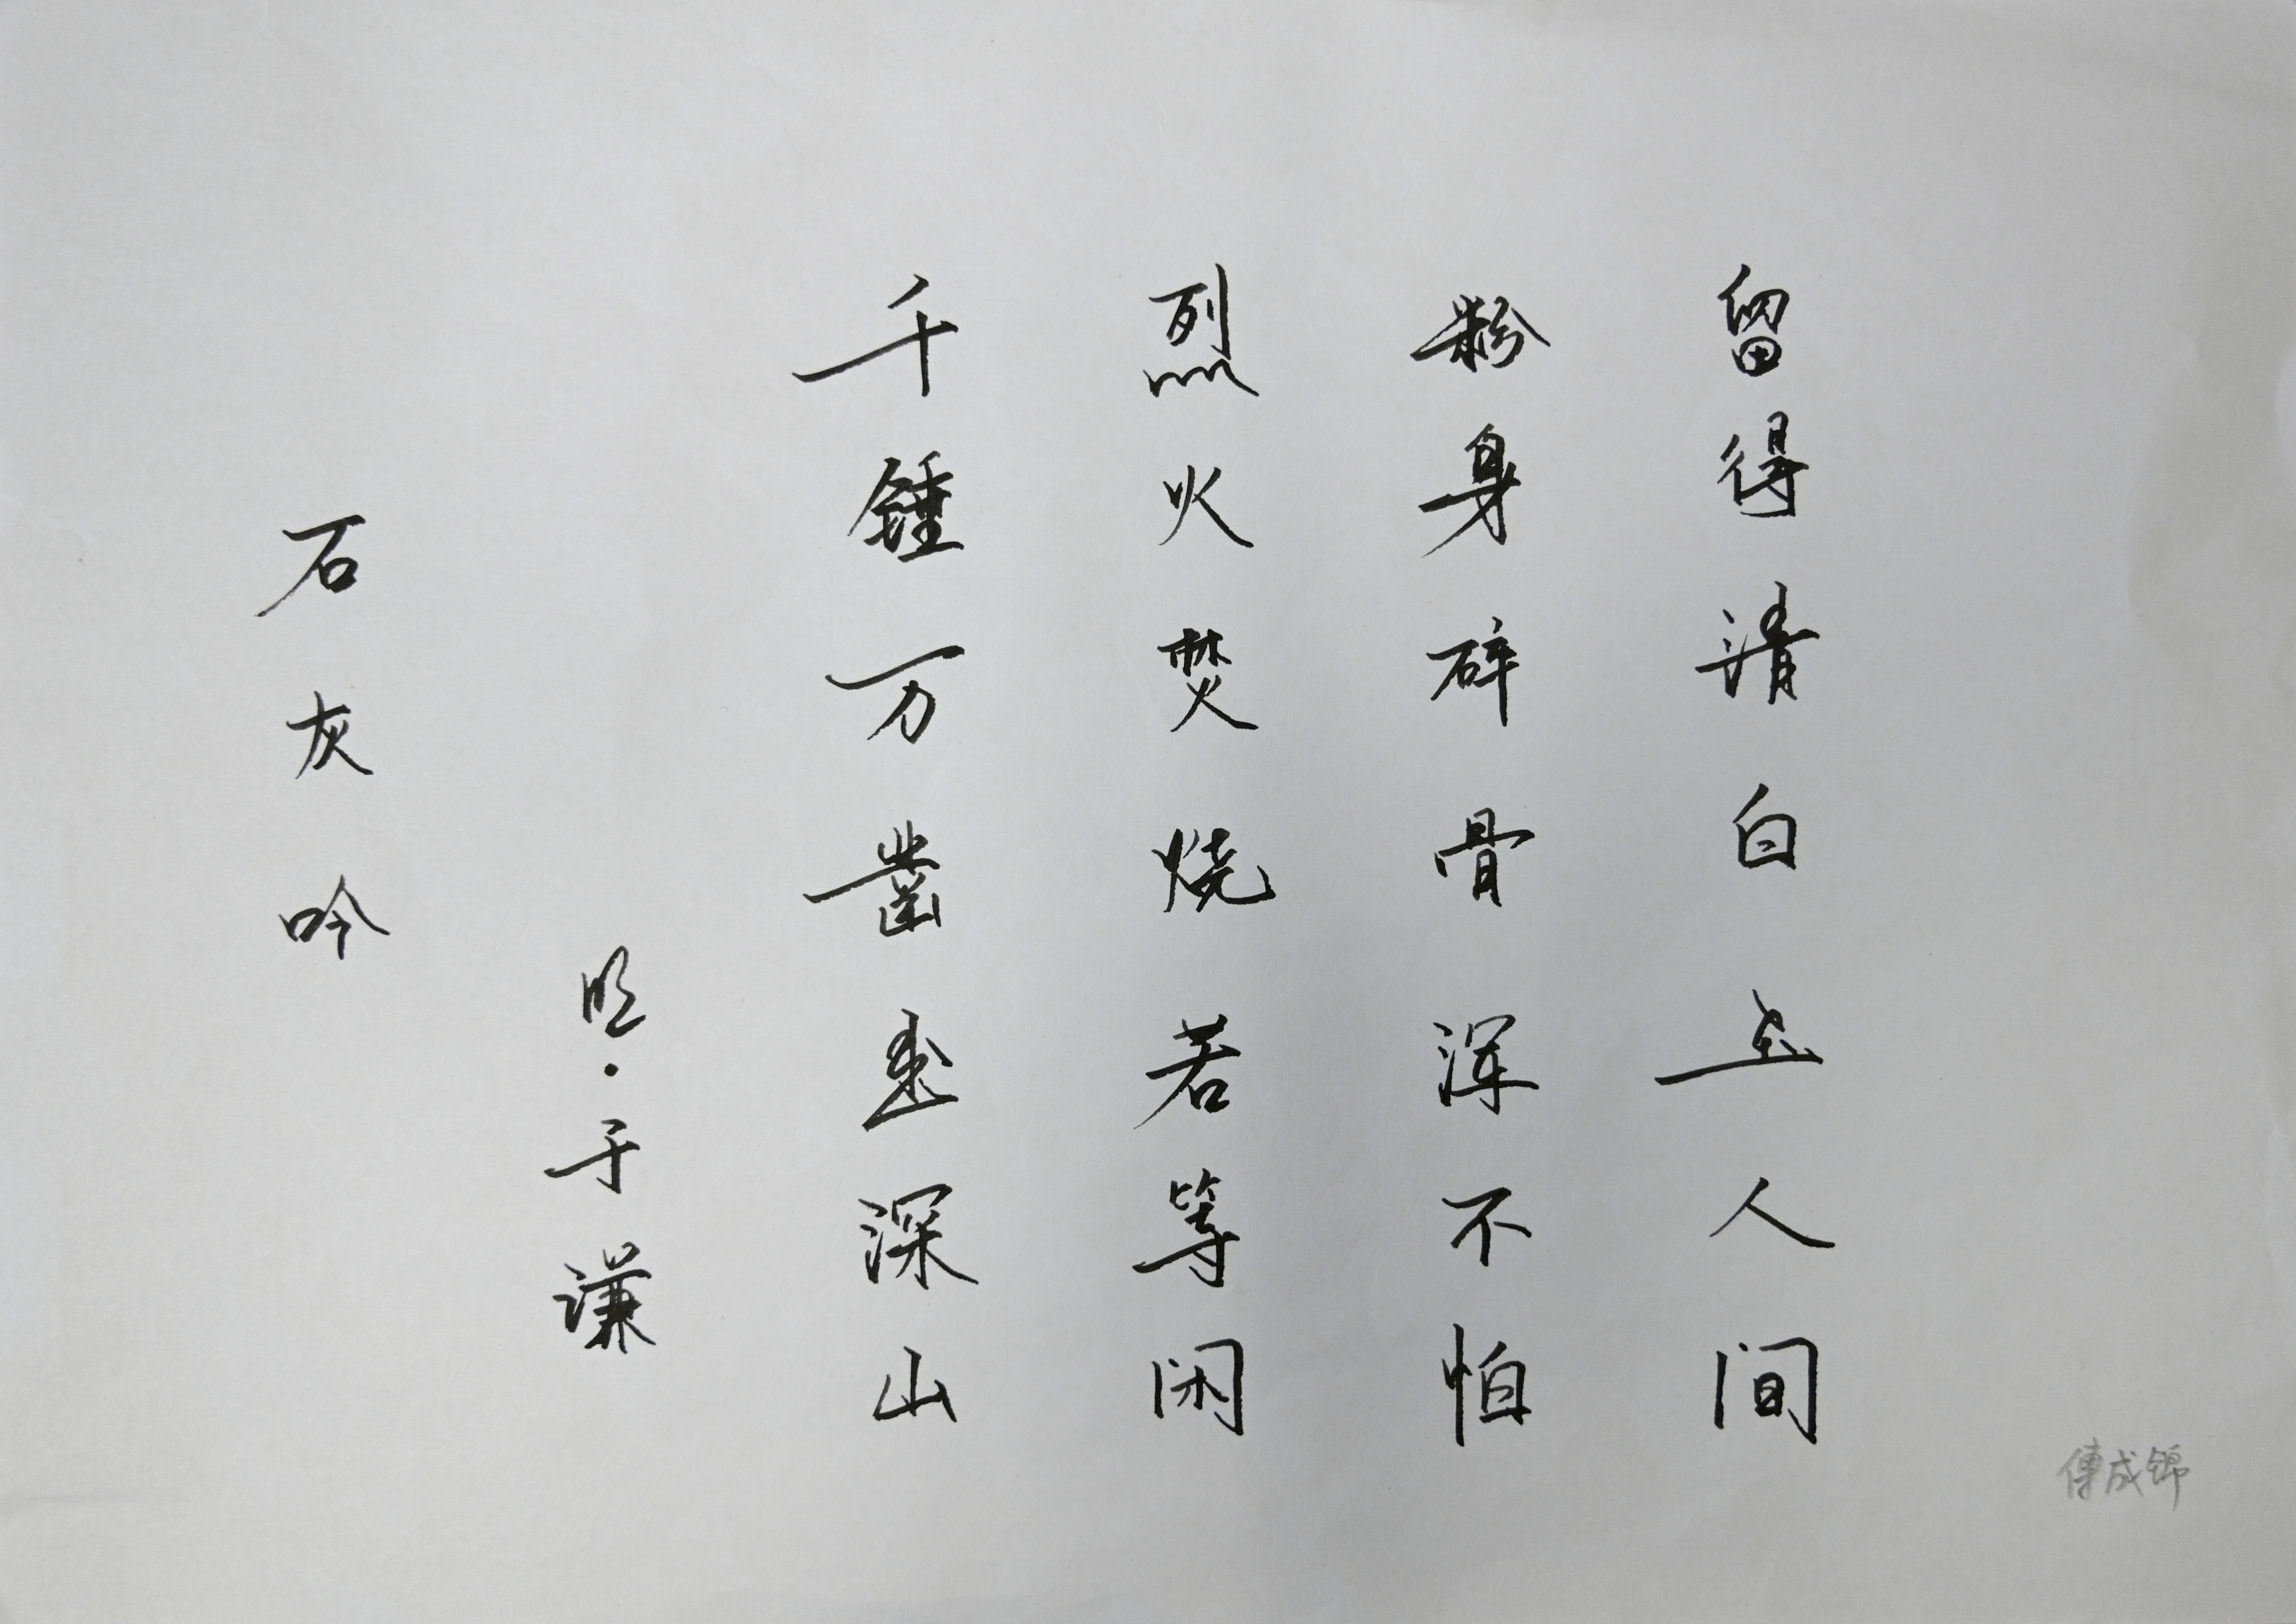 石灰吟
明·于谦
千锤万凿出深山
烈火焚烧若等闲
粉身碎骨浑不怕
留得清白在人间
傅成锦